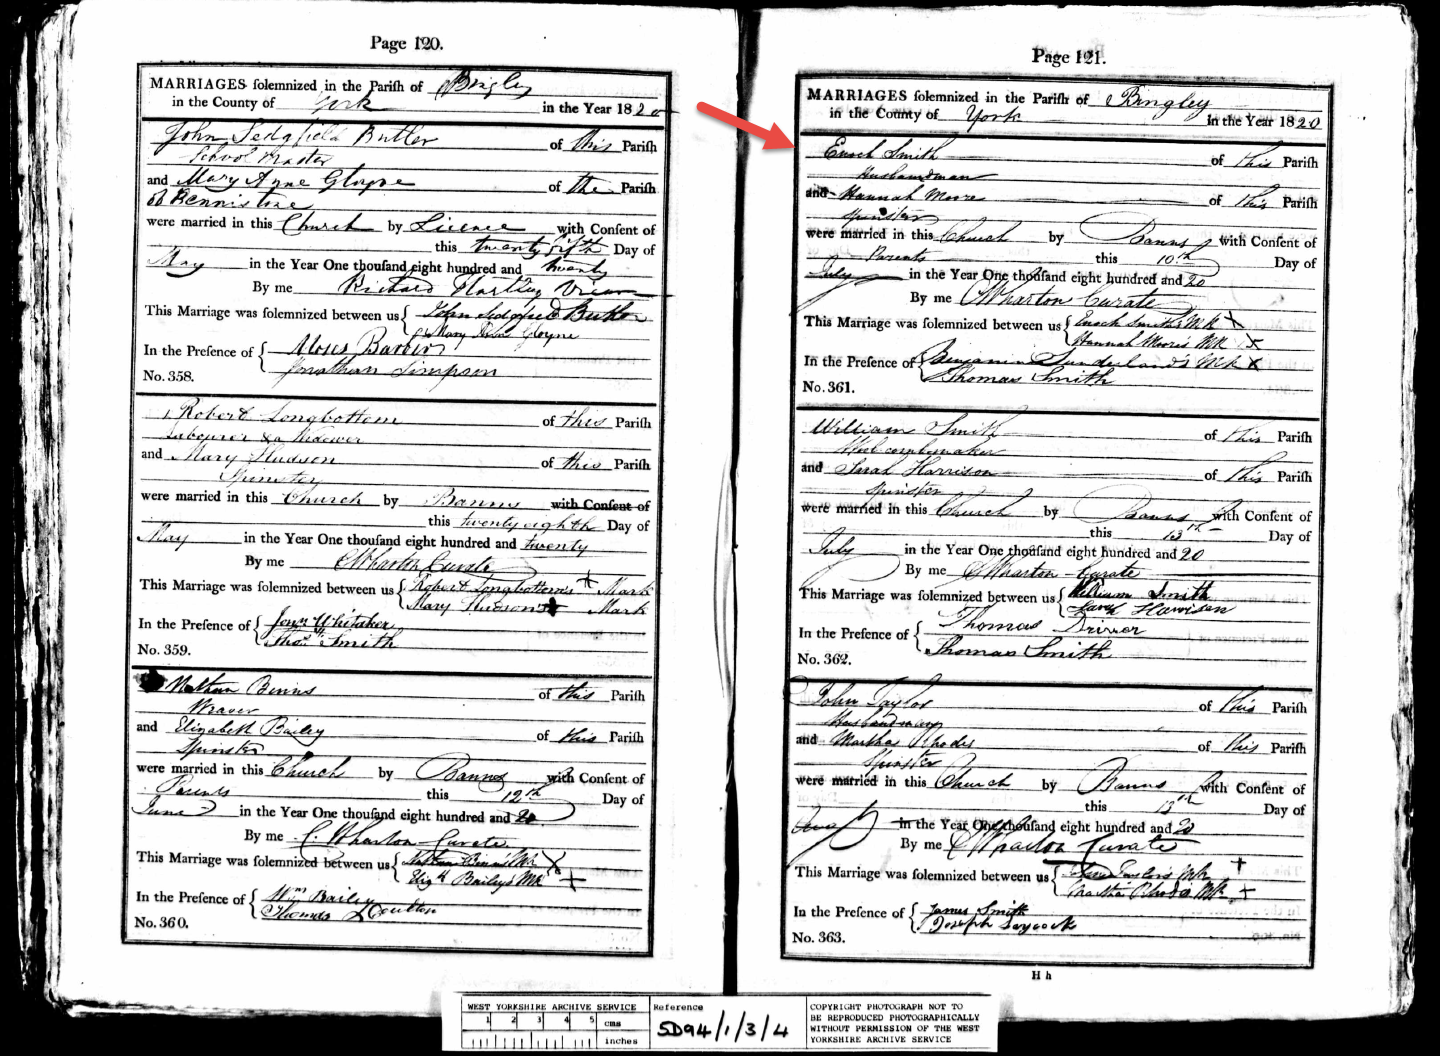 Page 120.
MARRIAGES solemnized in the Parish of Bingley
in the County of York in the Year 1820
John Sedgfield Butler of this Parish
School Master
and Mary Anne Gloyne of the Parish
of Pennistone
were married in this Church by Licence with Consent of
this twenty fifth Day of
May in the Year One thousand eight hundred and twenty
By me Richard Hartley Vicar
This Marriage was solemnized between us { John Sedgfield Butler
Mary Gloyne
In the Presence of { Moses
Jonathan Simpson
No. 358.
Robert Longbottom of this Parish
Labourer & a Widower
and Mary Hudson of this Parish
Spinster
were married in this Church by Banns with Consent of
this twenty eighth Day of
May in the Year One thousand eight hundred and twenty
By me C Wharton Curate
This Marriage was solemnized between us { Robert Longbottom's + Mark
Mary Hudson's + Mark
In the Presence of { John Whitaker
Thos. Smith
No. 359.
Nathan Binns of this Parish
Weaver
and Elizabeth Bailey of this Parish
Spinster
were married in this Church by Banns with Consent of
Parents this 12th Day of
June in the Year One thousand eight hundred and 20
By me C. Wharton Curate
This Marriage was solemnized between us { Nathan Binns Mk X
Elizth Bailey's Mk +
In the Presence of { Wm Bailey
Thomas
No. 360.
Page 121.
MARRIAGES solemnized in the Parish of Bingley
in the County of York in the Year 1820
Enoch Smith of this Parish
Husbandman
and Hannah Moore of this Parish
Spinster
were married in this Church by Banns with Consent of
Parents this 10th Day of
July in the Year One thousand eight hundred and 20
By me C Wharton Curate
This Marriage was solemnized between us { Enoch Smith's Mk X
Hannah Moore's Mk X
In the Presence of { Benjamin Sunderland's Mk X
Thomas Smith
No. 361.
William Smith of this Parish
and Sarah Harrison of this Parish
Spinster
were married in this Church by Banns with Consent of
this 13th Day of
July in the Year One thousand eight hundred and 20
By me C Wharton Curate
This Marriage was solemnized between us { William Smith
Sarah Harrison
In the Presence of { Thomas Driver
Thomas Smith
No. 362.
John Taylor of this Parish
Husbandman
and Martha Rhodes of this Parish
Spinster
were married in this Church by Banns with Consent of
this 13th Day of
in the Year One thousand eight hundred and 20
By me C Wharton Curate
This Marriage was solemnized between us { John Taylor's Mk +
Martha Rhodes Mk +
In the Presence of { James Smith
Joseph Laycock
No. 363.
H h
WEST YORKSHIRE ARCHIVE SERVICE
1 2 3 4 5 cms
inches
Reference
5D94/1/3/4
COPYRIGHT PHOTOGRAPH NOT TO
BE REPRODUCED PHOTOGRAPHICALLY
WITHOUT PERMISSION OF THE WEST
YORKSHIRE ARCHIVE SERVICE